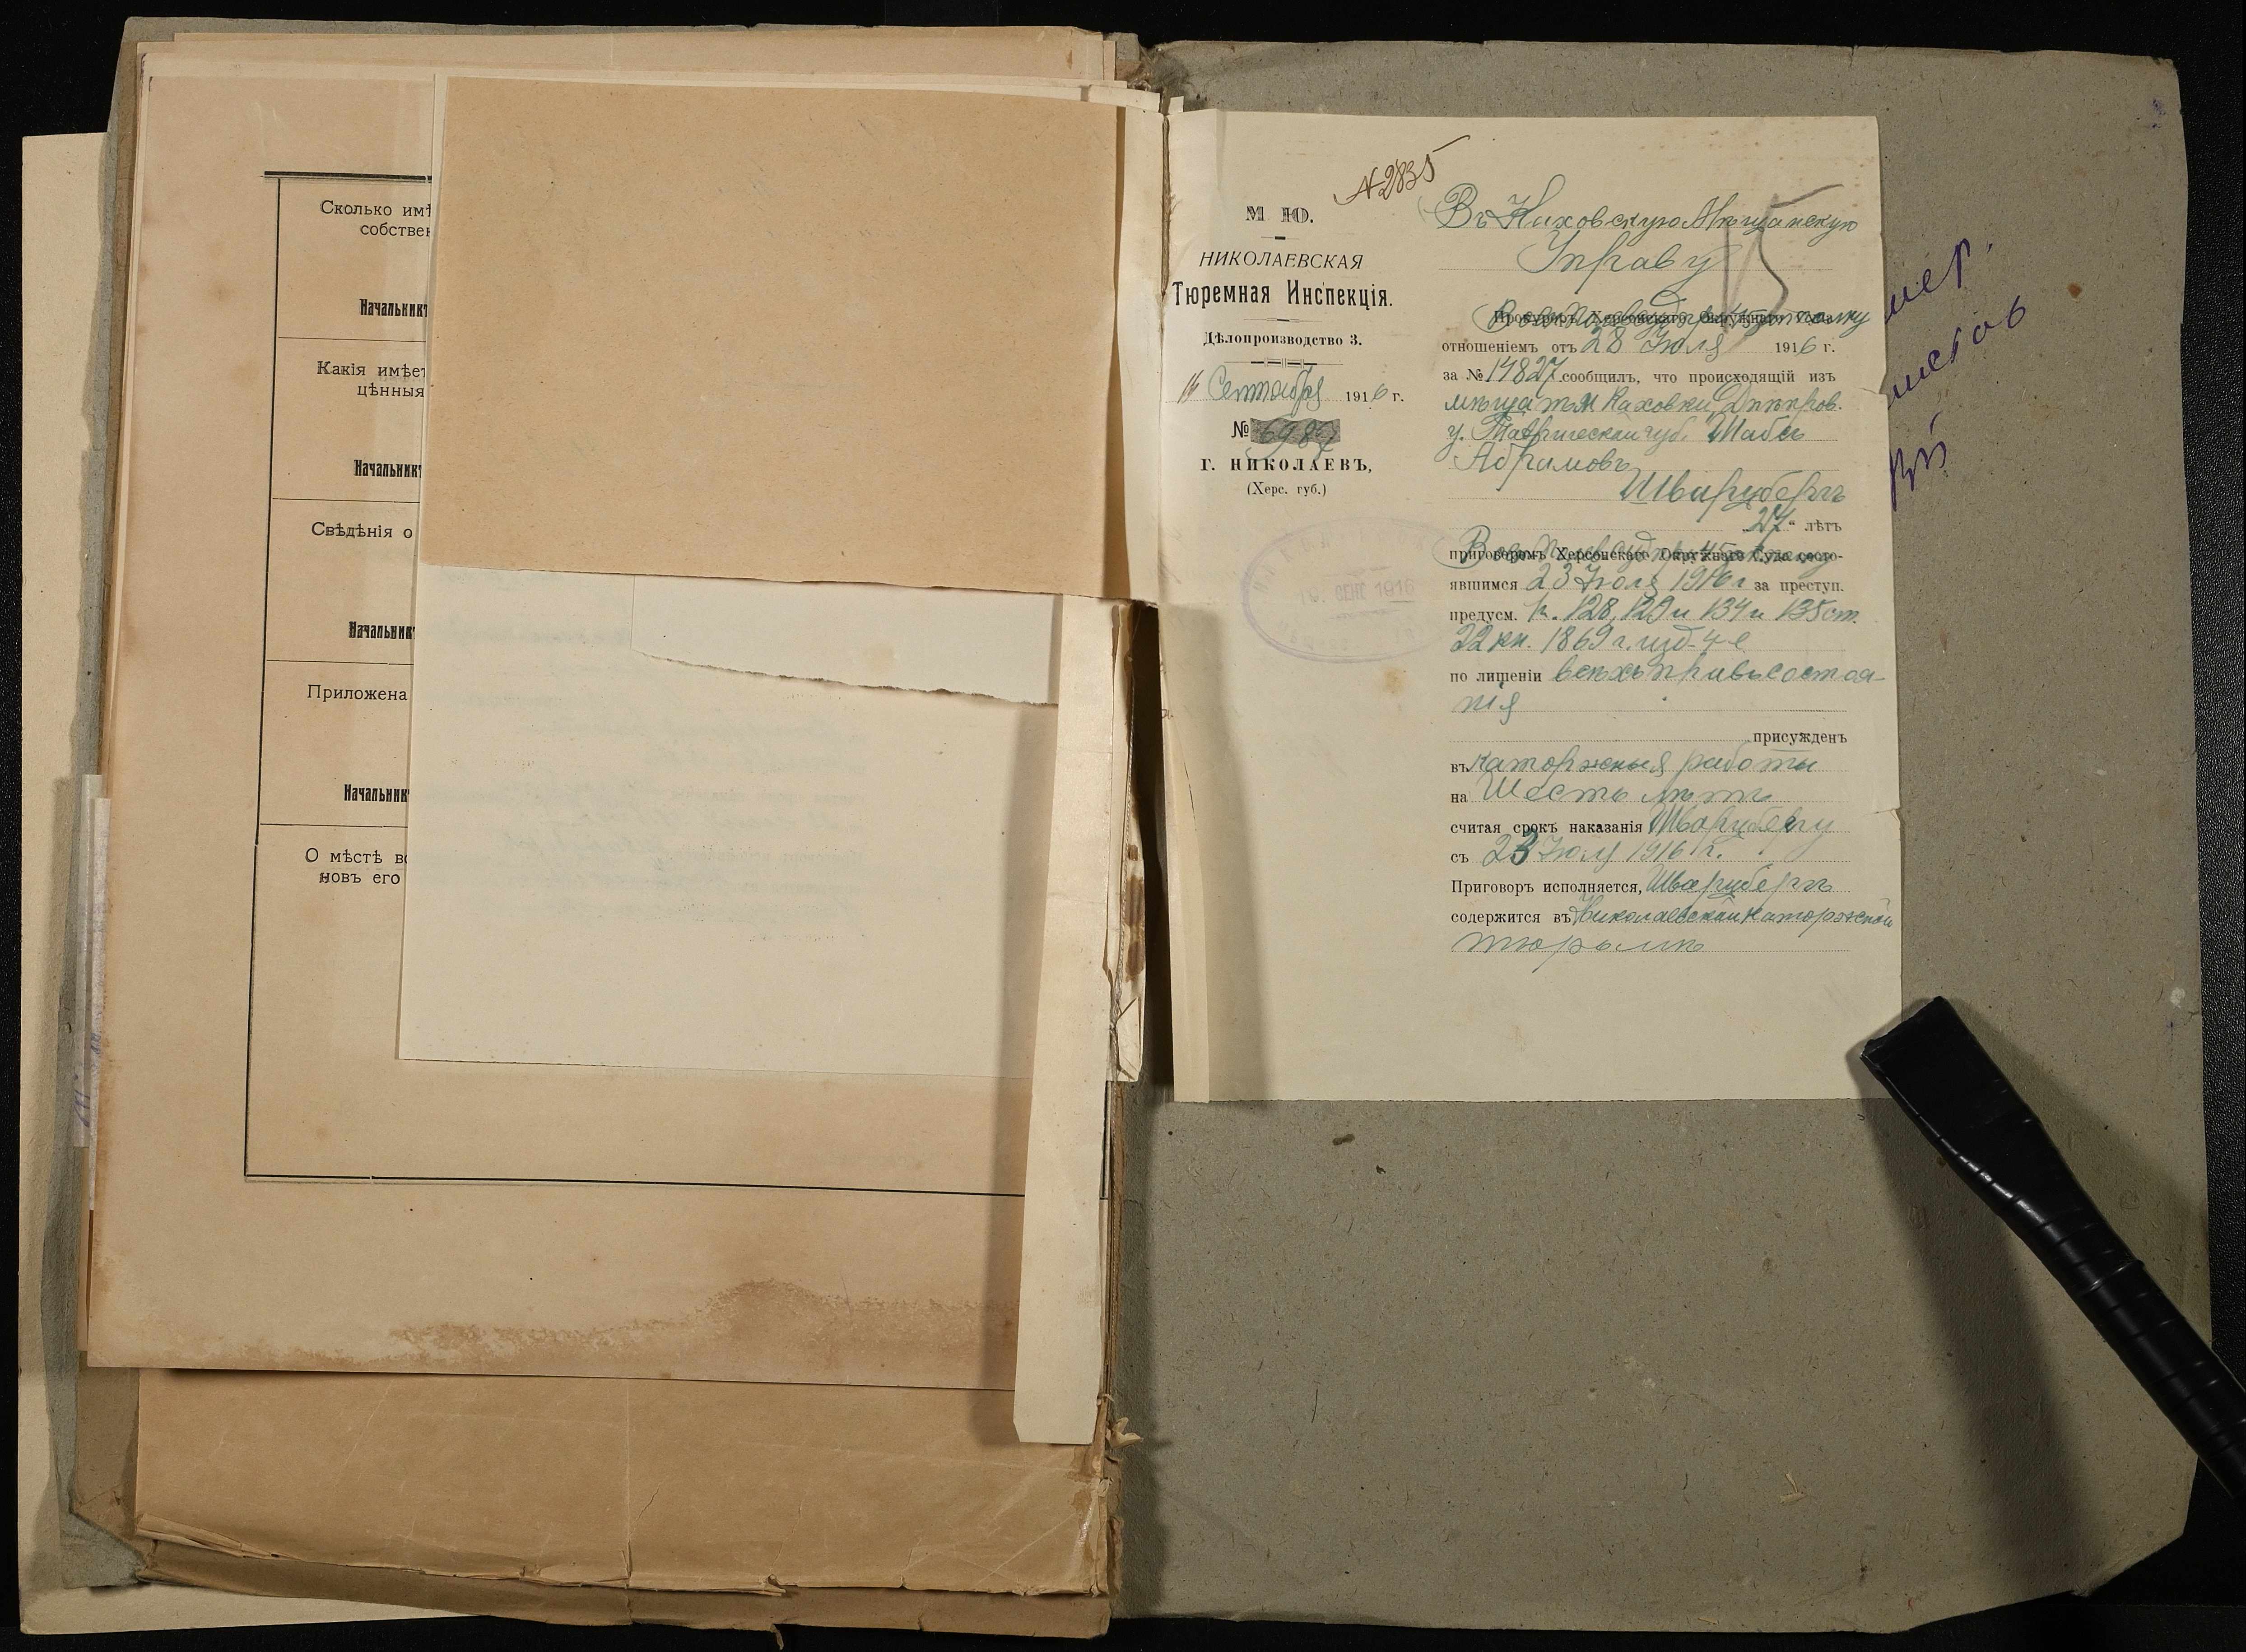 Сколько имѣ
собствен
Начальникъ
Какія имѣет
цѣнныя
Начальникъ
Свѣдѣнія о
Начальникъ
Приложена
Начальникъ
О мѣстѣ вс
новъ его
№ 2835
М Ю.
НИКОЛАЕВСКАЯ
Тюремная Инспекція.
Дѣлопроизводство 3.
16 Сентября 1916 г.
№ 6987
Г. НИКОЛАЕВЪ,
(Херс. губ.)
19. СЕНТ 1916
Въ Каховскую Мѣщанскую
Управу
15
Прокуроръ Херсонскаго Окружнаго Суда
отношеніемъ отъ 28 Іюля 1916 г.
за № 14827 сообщилъ, что происходящій изъ
мѣщанъ м Каховки, Днѣпров.
у. Таврической губ. Шабсъ
Абрамовъ
Шварцбергъ
27 лѣтъ
приговоромъ Херсонскаго Окружнаго Суда состо-
явшимся 23 Іюля 1916 г за преступ.
предусм. 128, 129 и 134 и 135 ст.
22 кн. 1869 г. изд. 4 е
по лишеніи всѣхъ правъ состоя-
нія
присужденъ
въ каторжныя работы
на Шесть лѣтъ
считая срокъ наказанія Шварцбергу
съ 23 Іюля 1916 г.
Приговоръ исполняется, Шварцбергъ
содержится въ Николаевской каторжной
тюрьмѣ